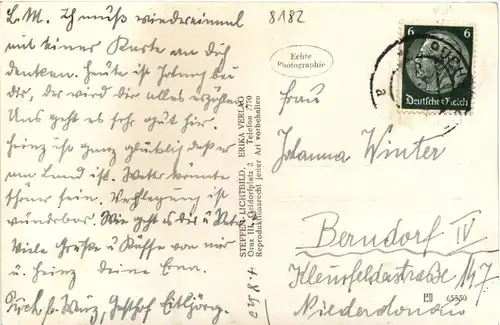 L. M. Ich muß wiedereinmal
mit einer Karte an dich
denken. Heute ist Irtung bei
dir, der wird dir alles erzählen.
Uns geht es sehr gut hier.
Heinz ist ganz glücklich daß er
am Land ist. Wetter könnte
schöner sein. Verpflegung ist
wunderbar. Wie geht es dir u.
Viele Grüße u Küsse von mir
u Heinz deine Erna.
Puch b. Weiz, Gasthof Eitljörg.
8182
Echte
Photographie
STEFFEN-LICHTBILD, ERIKA VERLAG
Graz III, Geidorfplatz 2 Telefon 770
Reproduktionsrecht jeder Art vorbehalten
6 6
Deutsches Reich
PUCH
a
Frau
Johanna Winter
Berndorf IV
Kleinfeldstraße 117
Niederdonau
45530